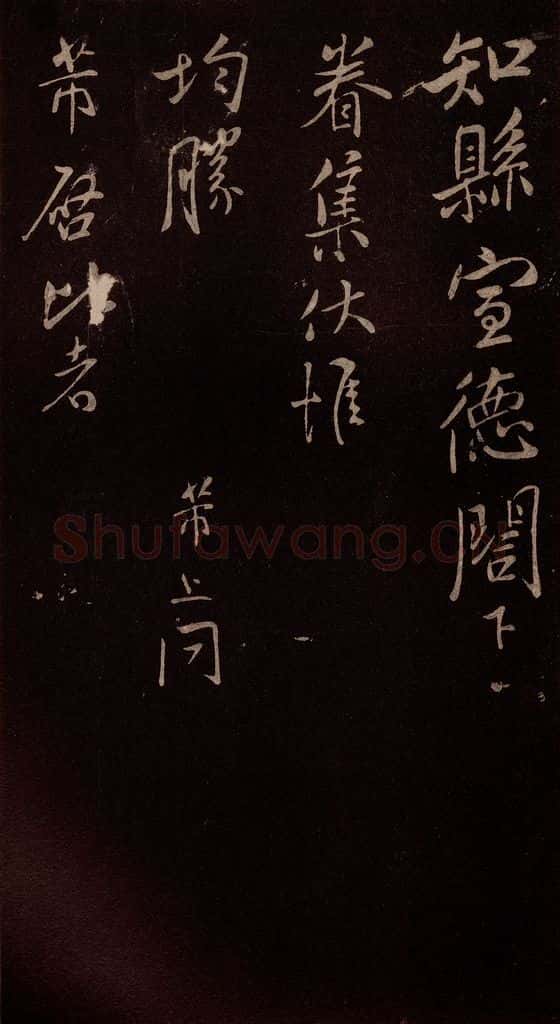 知縣宣德閤下
眷集伏惟
均勝
芾上問
芾啓比者
Shufawang.cn